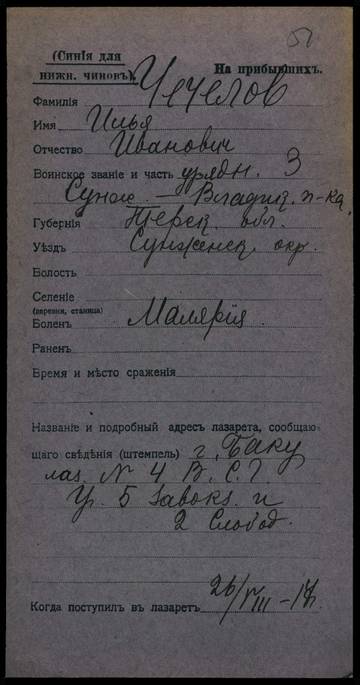 51
(Синія для
нижн. чиновъ).
На прибывшихъ.
Фамилія Чечелов
Имя Илья
Отчество Иванович
Воинское званіе и часть урядн. 3
Сунж. — Владик. п-ка
Губернія Терск. обл.
Уѣздъ Сунженск. окр.
Волость
Селеніе
(деревня, станица)
Боленъ Малярія.
Раненъ
Время и мѣсто сраженія
Названіе и подробный адресъ лазарета, сообщаю-
щаго свѣдѣнія (штемпель) г. Баку
лаз. N 4 В. С. Г.
Уг. 5 Завокз. и
2 Слобод.
Когда поступилъ въ лазаретъ 26/VIII – 17.